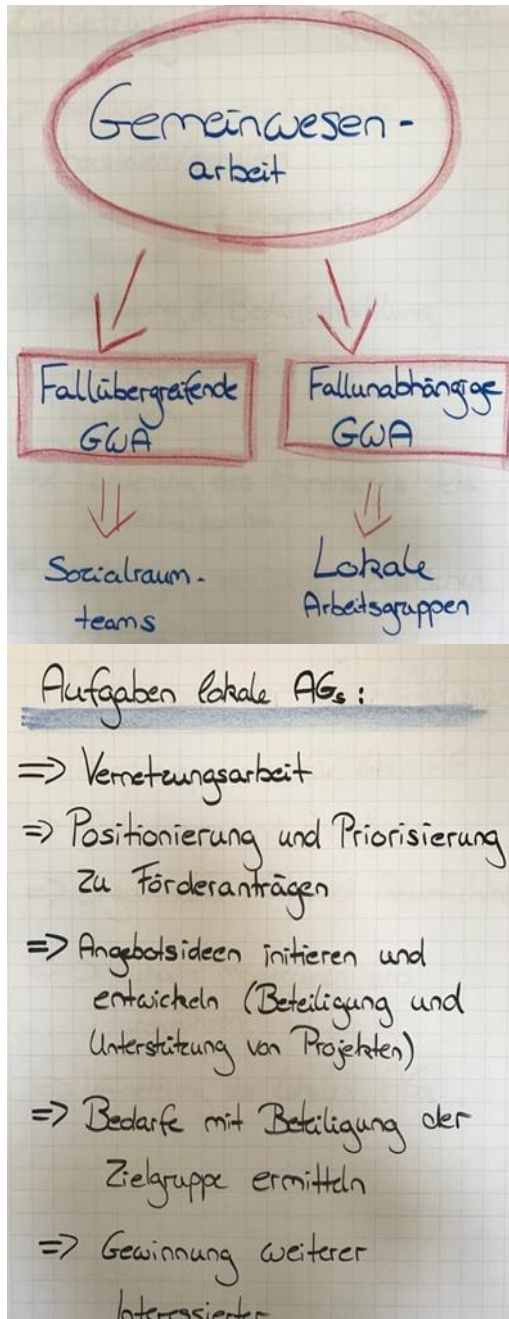 Gemeinwesen-
arbeit
Fallübergreifende
GWA
Fallunabhängige
GWA
Sozialraum-
teams
Lokale
Arbeitsgruppen
Aufgaben lokale AGs:
=> Vernetzungsarbeit
=> Positionierung und Priorisierung
zu Förderanträgen
=> Angebotsideen initieren und
entwickeln (Beteiligung und
Unterstützung von Projekten)
=> Bedarfe mit Beteiligung der
Zielgruppe ermitteln
=> Gewinnung weiterer
Interessierter